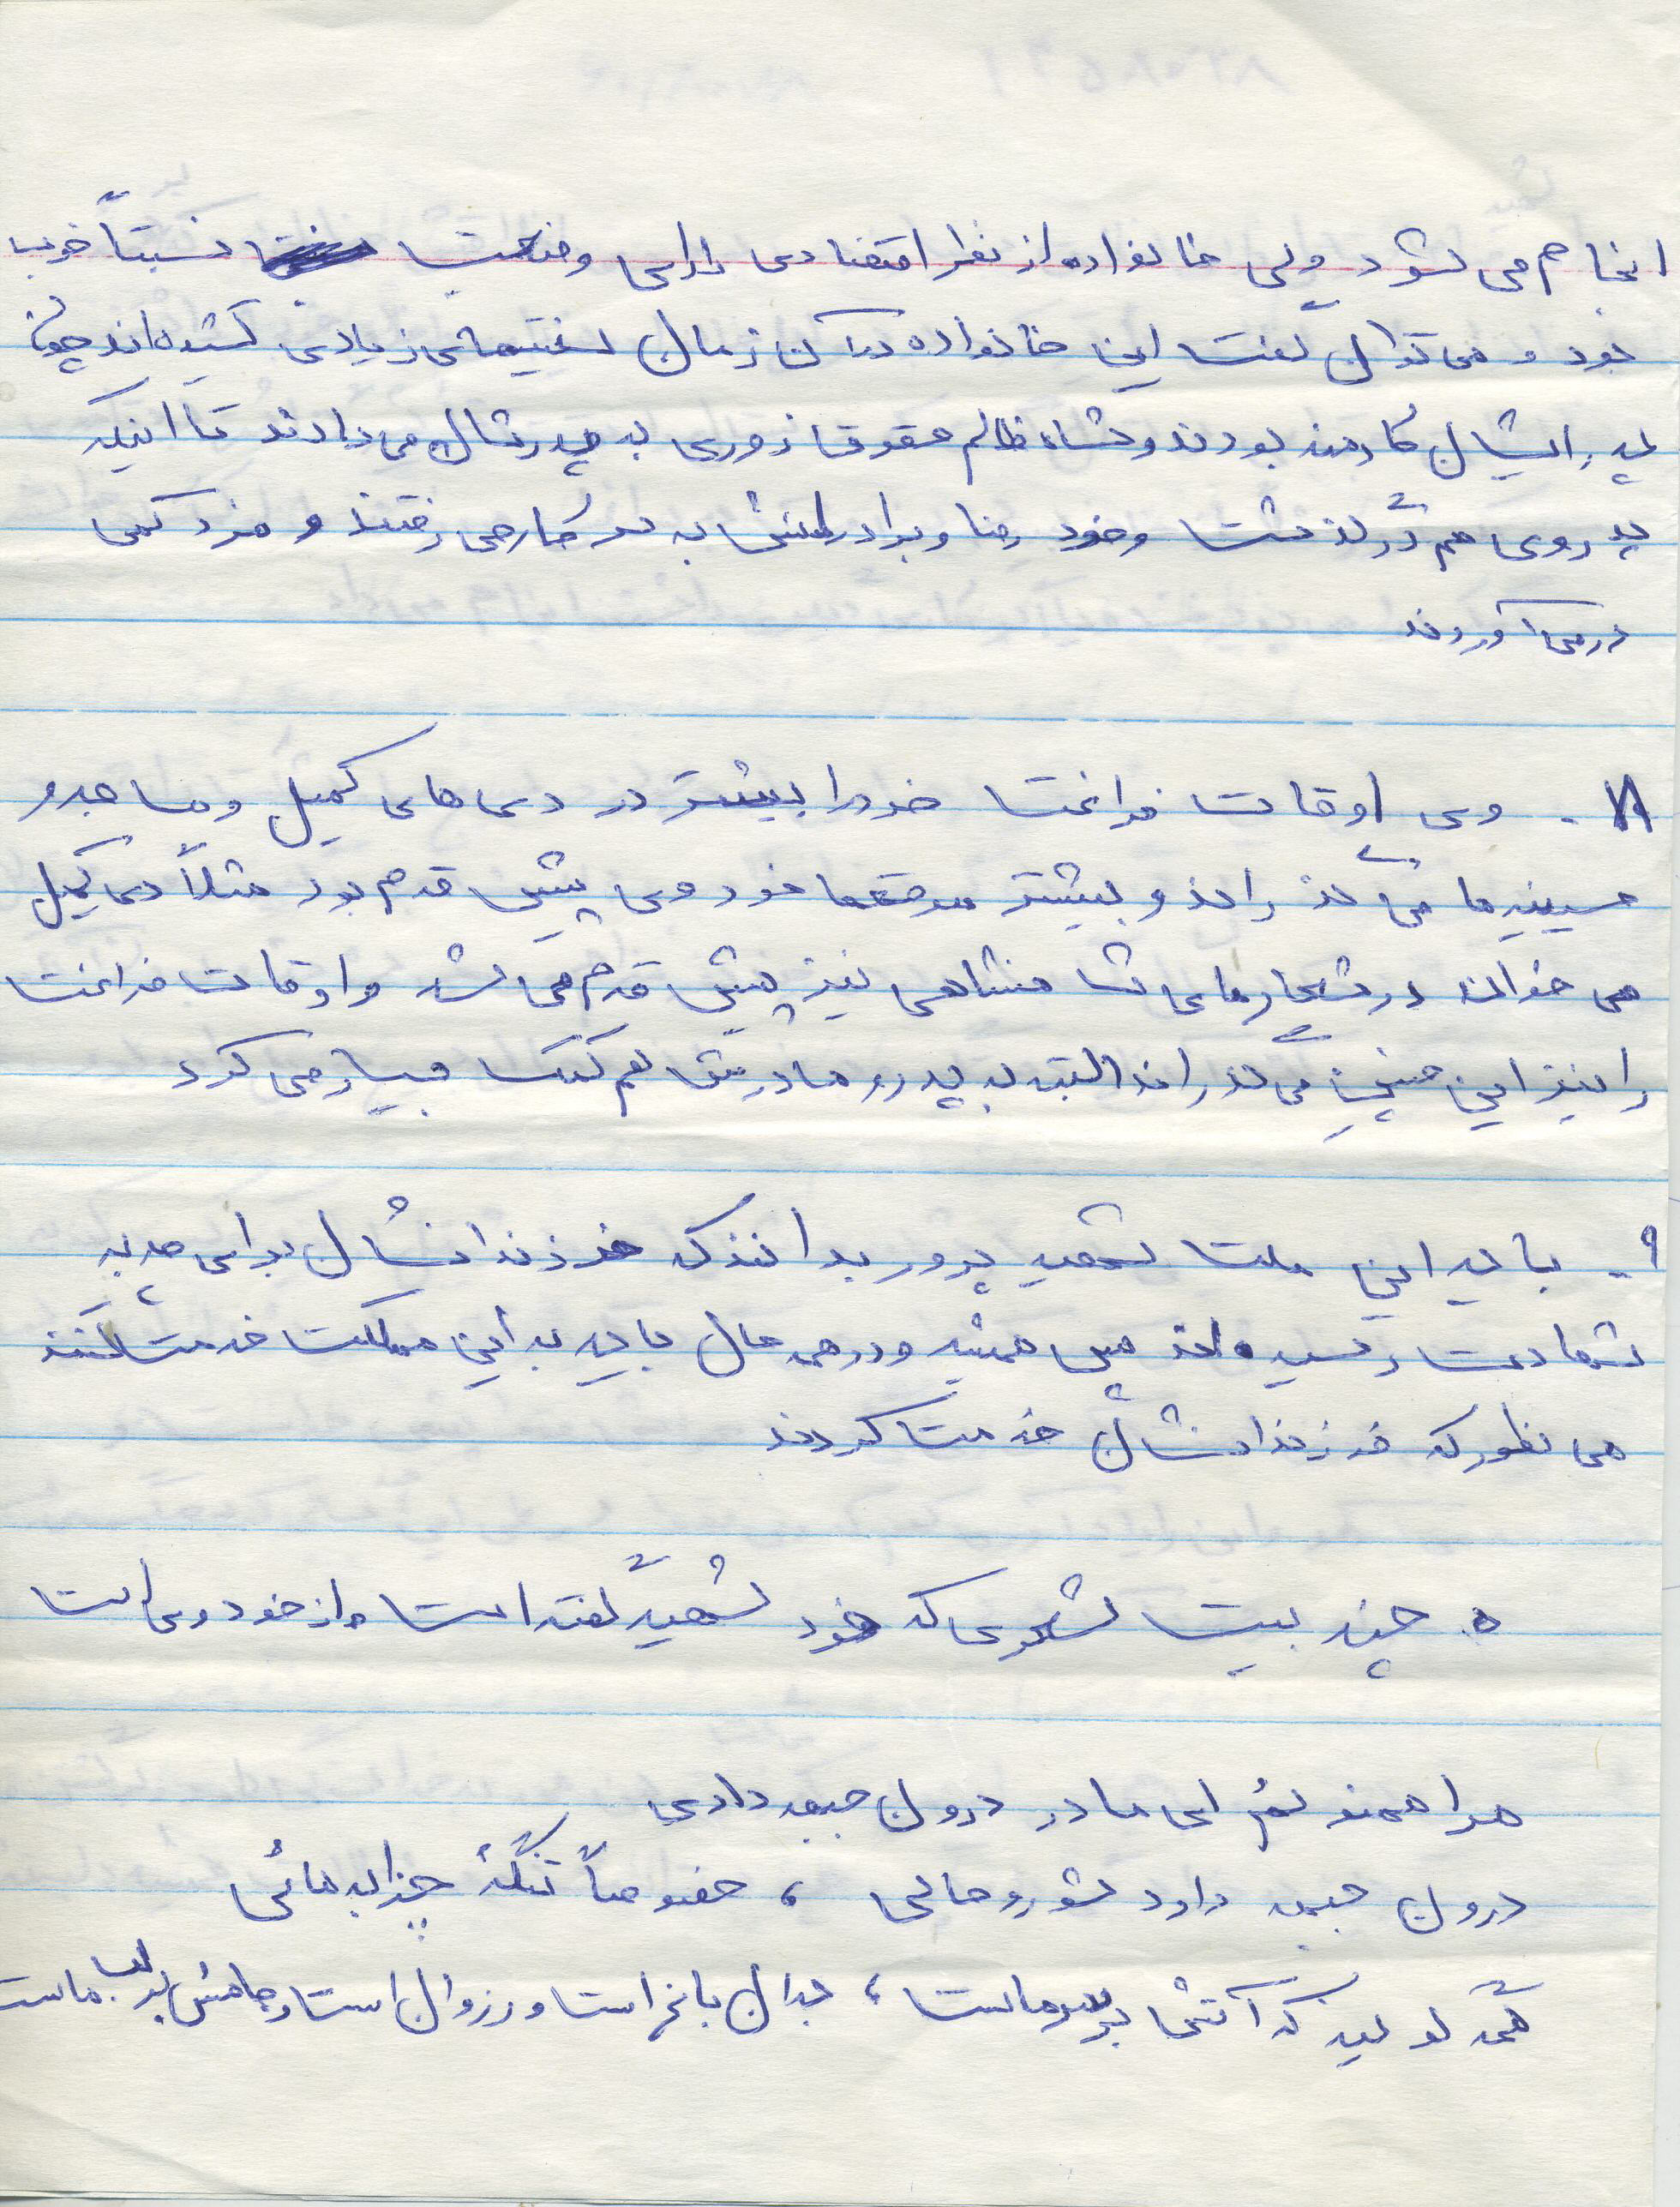 انجام می شود ولی خانواده از نظر اقتصادی دارای وضعیت نسبتاً خوب
بود و می توان گفت این خانواده در آن زمان سختیهای زیادی کشیده اند چون
پدر ایشان کارمند بودند و شاه ظالم حقوق زوری به پدرشان می دادند تا اینکه
پدر وی هم درگذشت و خود رضا و برادرانش به سر کار می رفتند و مزد کمی
در می آوردند
۸. وی اوقات فراغت خود را بیشتر در دعی های کمیل و مساجد و
حسینیه ها می گذراند و بیشتر موقعها خود وی پیش قدم بود مثلاً دعی کمیل
می خواند در شعارهای شاهنشاهی نیز پیش قدم می شد و اوقات فراغت
را نیز این چنین می گذراند البته به پدر و مادرش هم کمک بسیار می کرد
۹. باید این ملت شهید پرور بدانند که فرزندانشان برای چه به
شهادت رسیده اند پس همیشه و در همه حال باید به این مملکت خدمت کنند
همی نطور که فرزندانشان خدمت کردند
۵. چند بیت شعری که خود شهید گفته است و از خود وی است
مرا همنو نم ای مادر درون جبهه دادی
درون جبهه دارد شور و حالی ، خصوصاً تنگه چزابه هائی
همه گویید که آتش بر سر ماست ، جدال با نخر است و رزوان است و حامش بر لب ماست